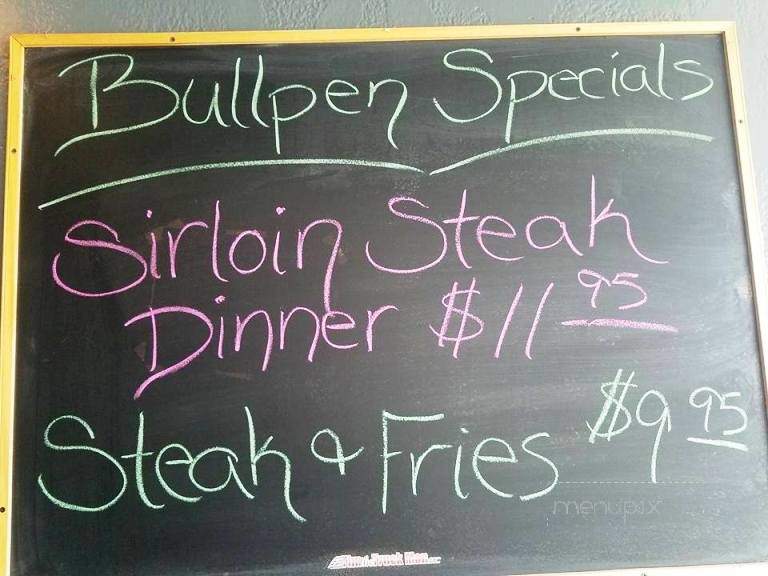 Bullpen Specials
Sirloin Steak
Dinner $11 95
Steak & Fries $9 95
menupix